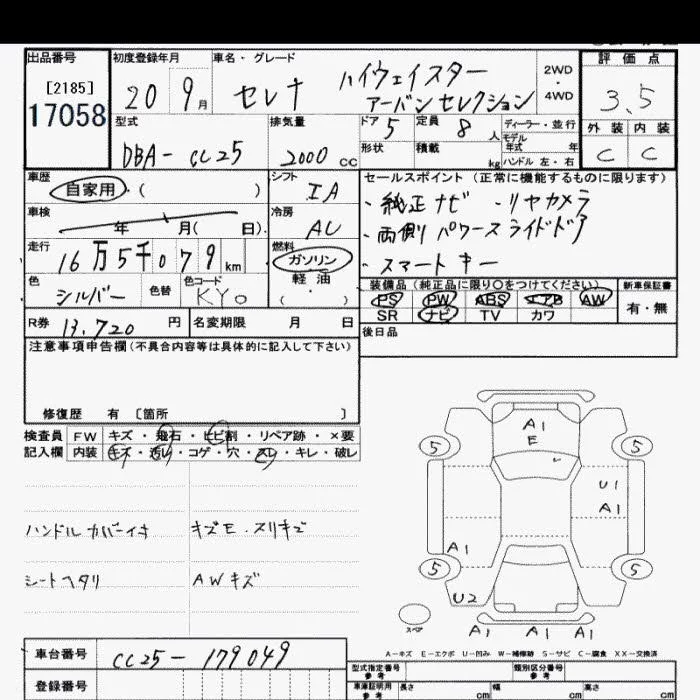 出品番号 初度登録年月 車名・グレード 評価点
[2185]
17058
20 9月 セレナ ハイウェイスター
アーバンセレクション
2WD
・
4WD
3.5
外装 内装
C C
型式 排気量 ドア 定員 ディーラー・並行
DBA-CC25 2000cc 5 8人 モデル年式 年
形状 積載 kg ハンドル 左・右
車歴 シフト セールスポイント (正常に機能するものに限ります)
自家用・( ) IA
・純正ナビ ・リヤカメラ
車検 冷房
年 月( 日) AC
・両側パワースライドドア
走行 燃料
16万5千079km ガソリン
・スマートキー
軽油
( )
色 色替 色コード
シルバー KY0
装備品(純正品に限り○をつけてください) 新車保証書
PS PW ABS エアB AW
SR ナビ TV カワ
有・無
R券 13,720円 名変期限 月 日
後日品
注意事項申告欄(不具合内容等は具体的に記入して下さい)
修復歴 有 〔箇所 〕
検査員 FW キズ・飛石・ヒビ割・リペア跡・×要
記入欄 内装 キズ・汚レ・コゲ・穴・スレ・キレ・破レ
ハンドルカバーイキ キズE.スリキズ
シートヘタリ AWキズ
A1
E
5 5
U1
A1
A1
5 5
U2
スペア
A1 A1 A1
A-キズ E-エクボ U-凹み W-補修跡 S-サビ C-腐食 XX-交換済
車台番号 CC25-179049
登録番号
型式指定番号 類別区分番号
参考 参考
車庫証明用 長さ 幅 高さ
参考 cm cm cm